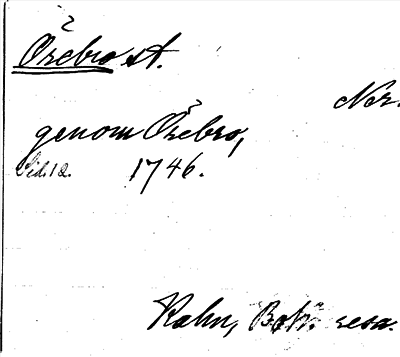 Örebro st.
När.
genom Örebro,
Sid. 12. 1746.
Kalm, Boh. resa.